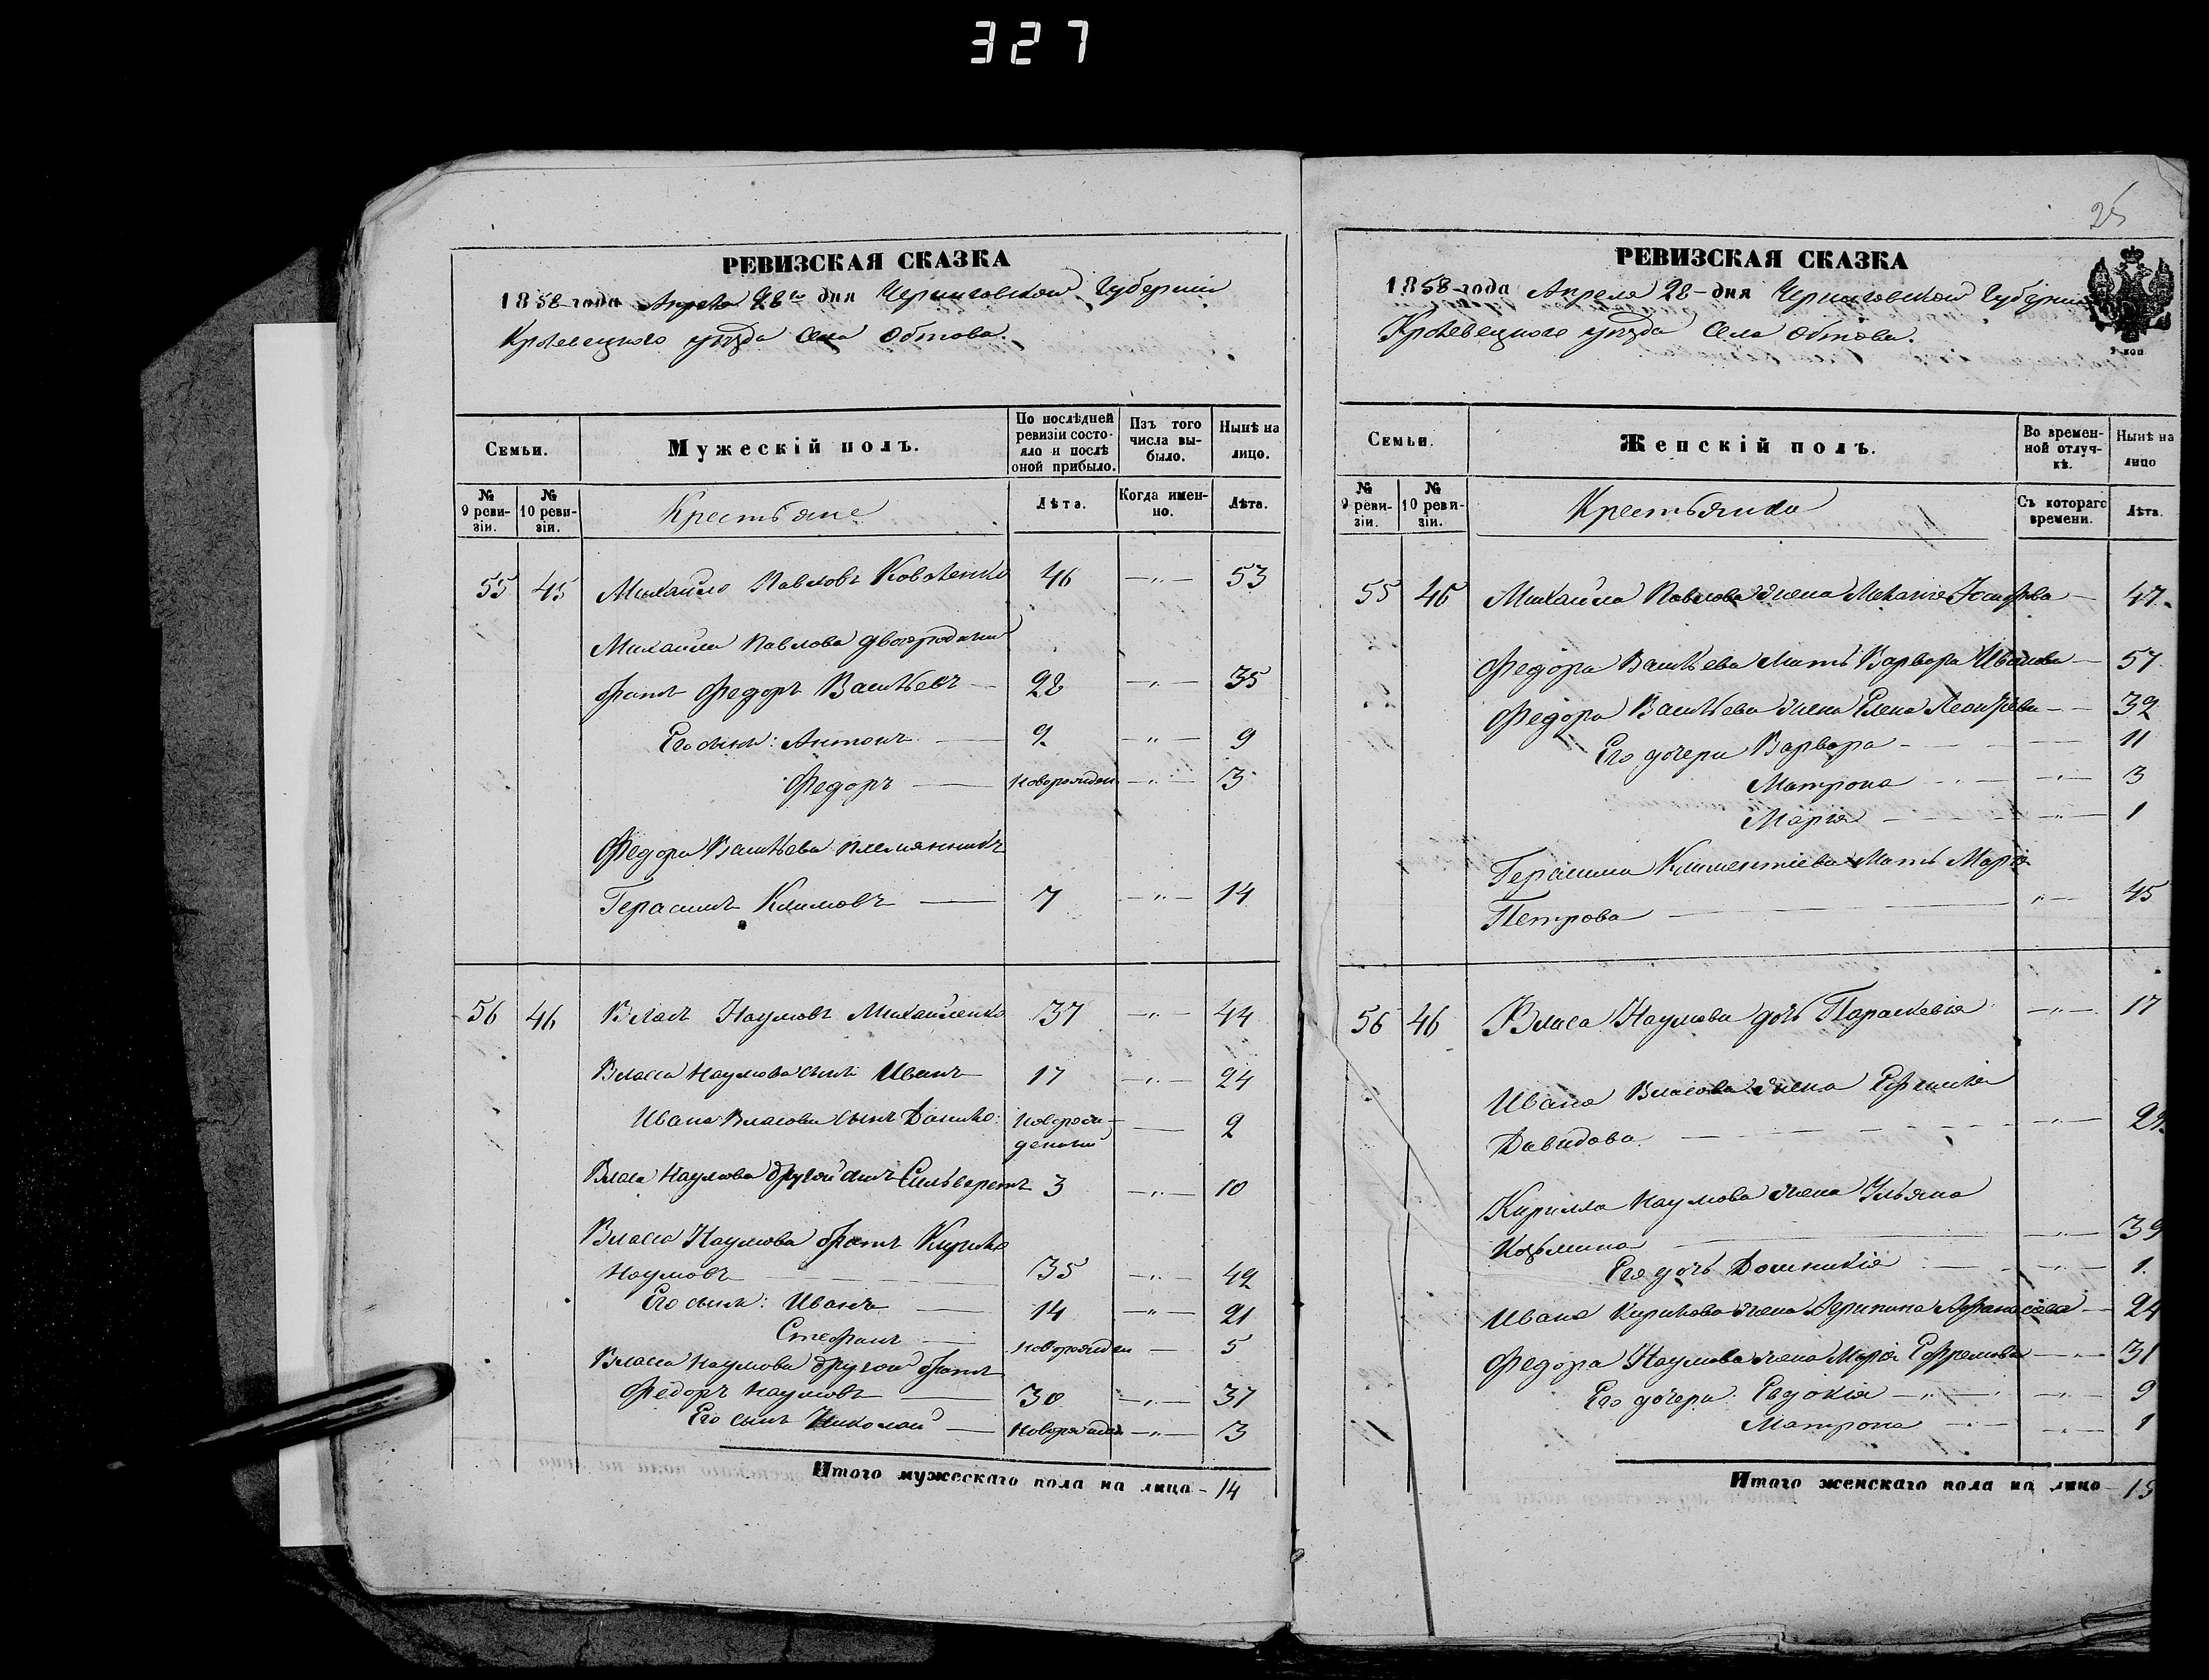 327
РЕВИЗСКАЯ СКАЗКА
1858 года Апреля 28го дня Черниговской Губерніи
Кролевецкого уѣзда Села Обтова.
Семьи.
Мужескій полъ.
По послѣдней ревизіи состояло и послѣ оной прибыло.
Изъ того числа выбыло.
Нынѣ на лицо.
№ 9 ревизіи.
№ 10 ревизіи.
Крестьяне
Лѣта.
Когда именно.
Лѣта.
55 45 Михайло Павловъ Коваленко 46 —„— 53
Михайла Павлова двоюродный
братъ Федоръ Васильевъ — 28 —„— 35
Его сынъ: Антонъ — 9. —„— 9
Федоръ — новорожден —„— 3
Федора Васильева племянникъ
Герасимъ Климовъ — 7 —„— 14
56 46 Власъ Наумовъ Михайленко 37 —„— 44
Власа Наумова сынъ Иванъ 17 —„— 24
Ивана Власова сынъ Данило: новорож-
денный — 2
Власа Наумова другой сынъ Сильверстъ 3 —„— 10
Власа Наумова братъ Кирило
Наумовъ — 35 —„— 42
Его сынъ: Иванъ — 14 —„— 21
Стефанъ — новорожден — 5
Власа Наумова другой братъ
Федоръ Наумовъ — 30 —„— 37
Его сынъ Николай — новорожден —„— 3
Итого мужескаго пола на лицо - 14
25
РЕВИЗСКАЯ СКАЗКА
1858 года Апреля 28 дня Черниговской Губерніи
Кролевецкого уѣзда Села Обтова.
Семьи.
Женскій полъ.
Во временной отлучкѣ.
Нынѣ на лицо
№ 9 ревизіи.
№ 10 ревизіи.
Крестьянки
Съ котораго времени.
Лѣта.
55 45 Михайла Павлова жена Меланія Іосифова — 47.
Федора Васильева мать Варвара Иванова — 57
Федора Васильева жена Елена Леонтіева — 32
Его дочери Варвара — 11
Матрона —„— 3
Марія —„— 1
Герасима Климентіева мать Марія
Петрова — „— 45
56 46 Власа Наумова дочь Параскевія —„— 17
Ивана Власова жена Ефимія
Давидова — —„— 24.
Кирилла Наумова жена Ульяна
Козьмина — —„— 39
Его дочь Домникія —„— 1.
Ивана Кирилова жена Агрипина Афанасіева — 24
Федора Наумова жена Марія Ефремова —„— 31
Его дочери: Евдокія —„— 9
Матрона —„— 1
Итого женскаго пола на лицо - 15